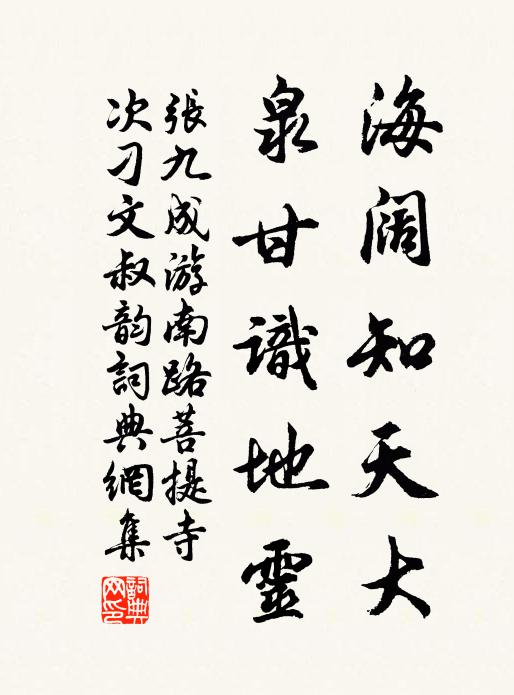 海阔知天大
泉甘識地靈
張九成游南路菩提寺
次刁文叔韵詞典網集
詞典网印